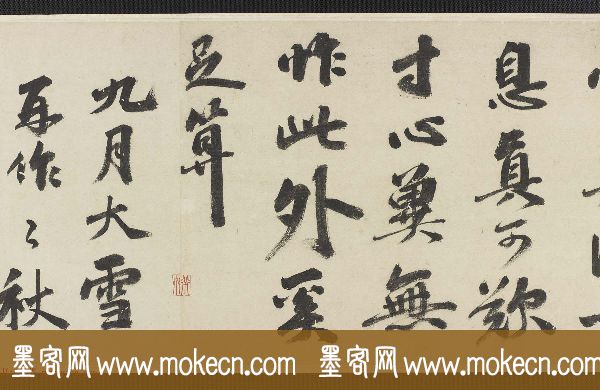 息真可歎
寸心冀無
怍此外奚
足算
九月大雪
再作〻秋
墨客网 www.mokecn.com 墨客网 www.mokecn.com